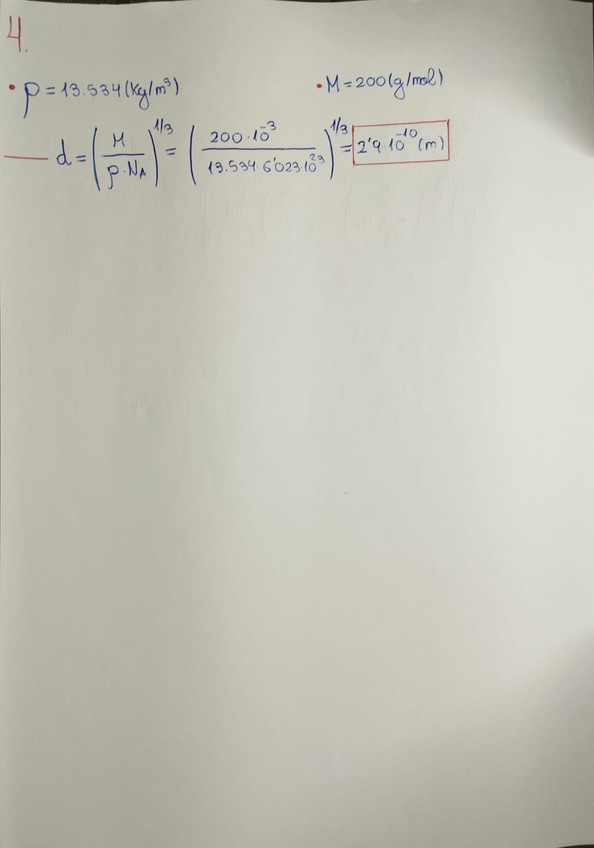 4.
• ρ = 13.534 (kg/m³) • M = 200 (g/mol)
— d = (M / ρ · N_A)^1/3 = (200 · 10⁻³ / 13.534 · 6'023 · 10²³)^1/3 = 2'9 · 10⁻¹⁰ (m)